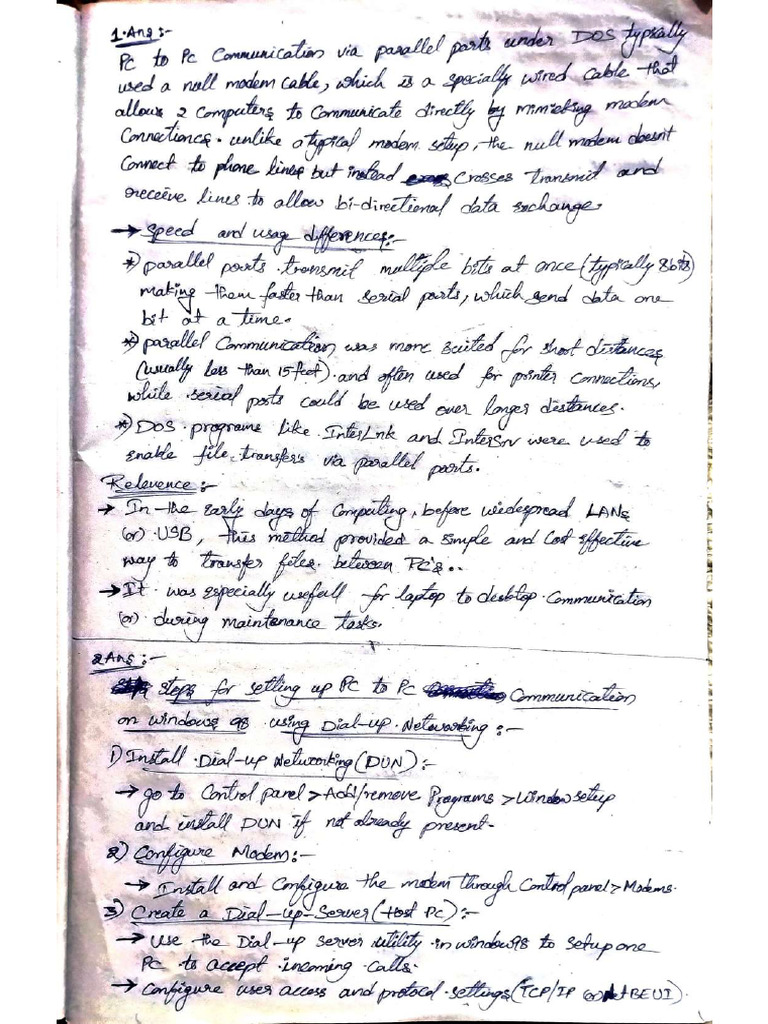 1.Ans:-
PC to Pc Communication via parallel ports under DOS typically
used a null modem cable, which is a specially wired cable that
allows 2 Computers to Communicate directly by mimicking modem
Connections. unlike a typical modem setup, the null modem doesn't
Connect to phone lines but instead crosses transmit and
receive lines to allow bi-directional data exchange.
→ Speed and usage differences:-
*) parallel ports transmit multiple bits at once (typically 8bits)
making them faster than serial ports, which send data one
bit at a time.
*) parallel Communication was more suited for short distances
(usually less than 15 feet) and often used for printer connections,
while serial ports could be used over longer distances.
*) DOS programs like InterLnk and InterSrv were used to
enable file transfers via parallel ports.
Relevence:-
→ In the early days of Computing, before widespread LANs
(or) USB, this method provided a simple and Cost effective
way to transfer files between PC's..
→ It was especially usefull for laptop to desktop Communication
(or) during maintenance tasks.
2Ans:-
steps for setting up PC to PC Communication
on windows 98 using Dial-up Networking:-
1) Install Dial-up Networking (DUN):-
→ go to Control panel > Add/remove Programs > Window setup
and install DUN if not already present.
2) Configure Modem:-
→ Install and Configure the modem through Control panel > Modems.
3) Create a Dial-up-Server (Host PC):-
→ Use the Dial-up server utility in window98 to setup one
PC to accept incoming calls.
→ Configure user access and protocol settings (TCP/IP (or) BEUI).